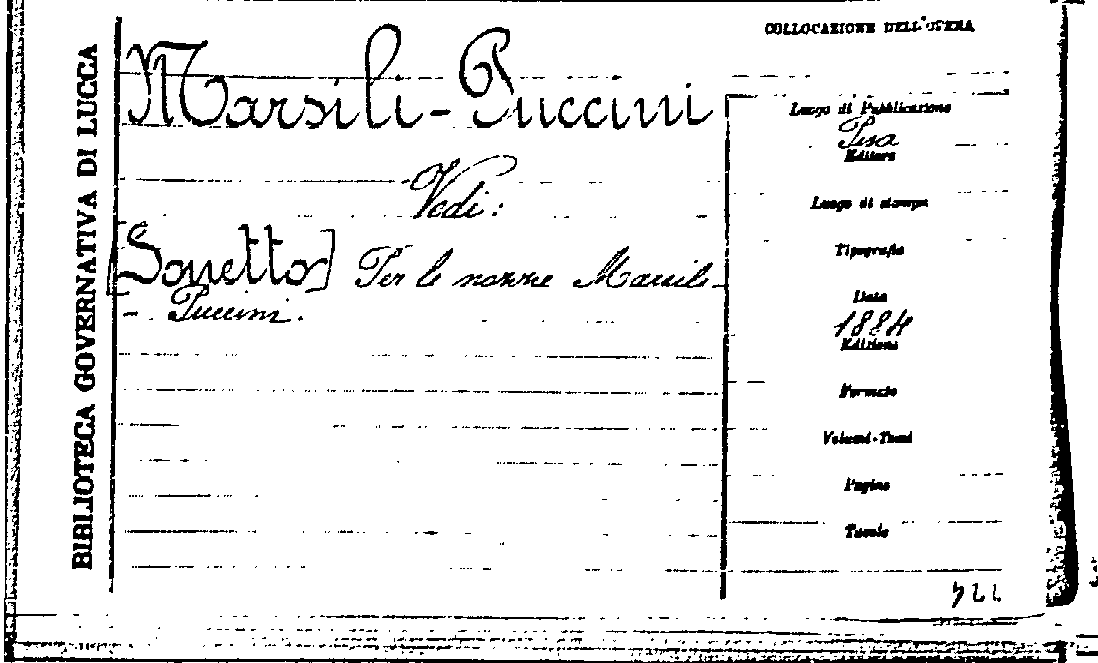 BIBLIOTECA GOVERNATIVA DI LUCCA
COLLOCAZIONE DELL'OPERA
Marsili-Puccini
Vedi:
[Sonetto] Per le nozze Marsili-
- Puccini.
Luogo di Pubblicazione
Pisa
Editore
Luogo di stampa
Tipografia
Data
1884
Edizione
Formato
Volumi-Tomi
Pagine
Tavole